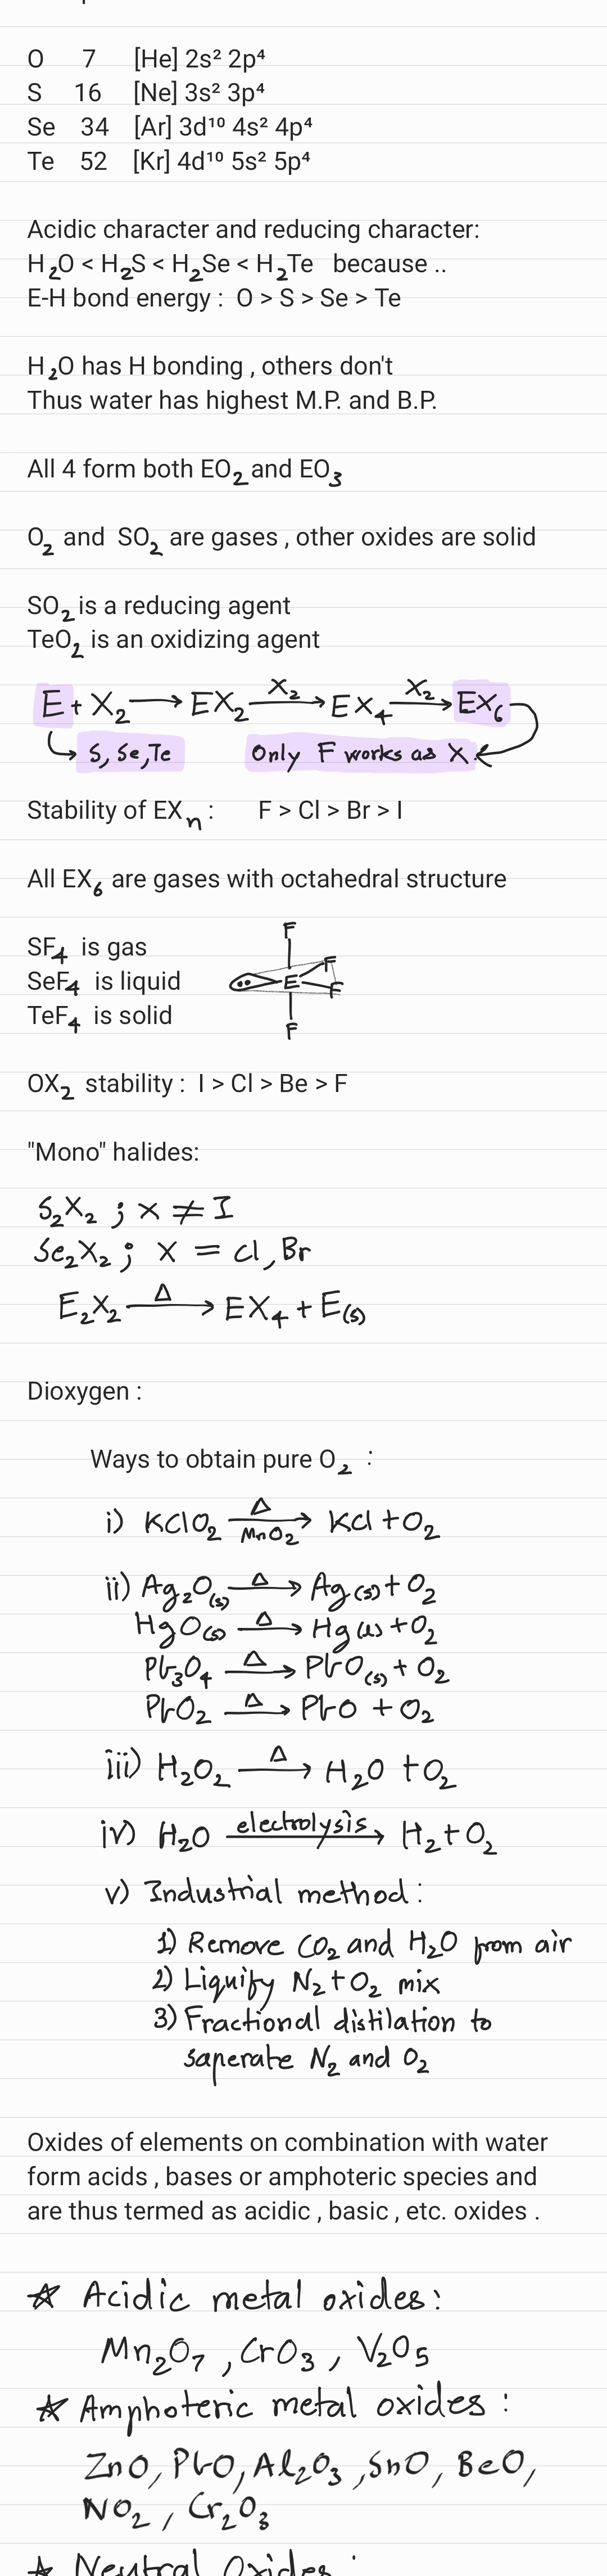 O 7 [He] 2s² 2p⁴
S 16 [Ne] 3s² 3p⁴
Se 34 [Ar] 3d¹⁰ 4s² 4p⁴
Te 52 [Kr] 4d¹⁰ 5s² 5p⁴
Acidic character and reducing character:
H₂O < H₂S < H₂Se < H₂Te because ..
E-H bond energy : O > S > Se > Te
H₂O has H bonding , others don't
Thus water has highest M.P. and B.P.
All 4 form both EO₂ and EO₃
O₂ and SO₂ are gases , other oxides are solid
SO₂ is a reducing agent
TeO₂ is an oxidizing agent
E + X₂ → EX₂ —X₂→ EX₄ —X₂→ EX₆
S, Se, Te Only F works as X.
Stability of EXₙ : F > Cl > Br > I
All EX₆ are gases with octahedral structure
F
SF₄ is gas F
SeF₄ is liquid E F
TeF₄ is solid F
OX₂ stability : I > Cl > Be > F
"Mono" halides:
S₂X₂ ; x ≠ I
Se₂X₂ ; X = Cl, Br
E₂X₂ —Δ→ EX₄ + E(s)
Dioxygen :
Ways to obtain pure O₂ :
i) KClO₂ —Δ/MnO₂→ KCl + O₂
ii) Ag₂O(s) —Δ→ Ag(s) + O₂
HgO(s) —Δ→ Hg + O₂
Pb₃O₄ —Δ→ PbO(s) + O₂
PbO₂ —Δ→ PbO + O₂
iii) H₂O₂ —Δ→ H₂O + O₂
iv) H₂O —electrolysis→ H₂ + O₂
v) Industrial method :
1) Remove CO₂ and H₂O from air
2) Liquify N₂ + O₂ mix
3) Fractional distilation to
saperate N₂ and O₂
Oxides of elements on combination with water
form acids , bases or amphoteric species and
are thus termed as acidic , basic , etc. oxides .
☆ Acidic metal oxides :
Mn₂O₇ , CrO₃ , V₂O₅
☆ Amphoteric metal oxides :
ZnO, PbO, Al₂O₃ , SnO, BeO,
NO₂ , Cr₂O₃
☆ Neutral Oxides :